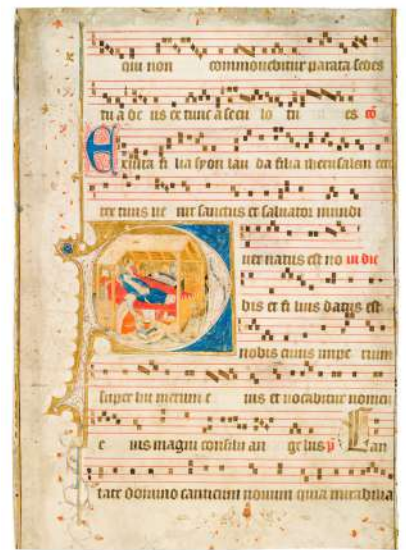 qui non commouebitur parata sedes
tu a de us ex tunc a secu lo tu es cō
Exulta fi lia syon lau da filia iherusalem ecce
rex tuus ue nit sanctus et saluator mundi
uer natus est no in die
bis et fi lius datus est
nobis cuius impe rium
super hu merum e ius et uocabitur nomen
e ius magni consilii an ge lus p̄ Can
tate domino canticum nouum quia mirabilia